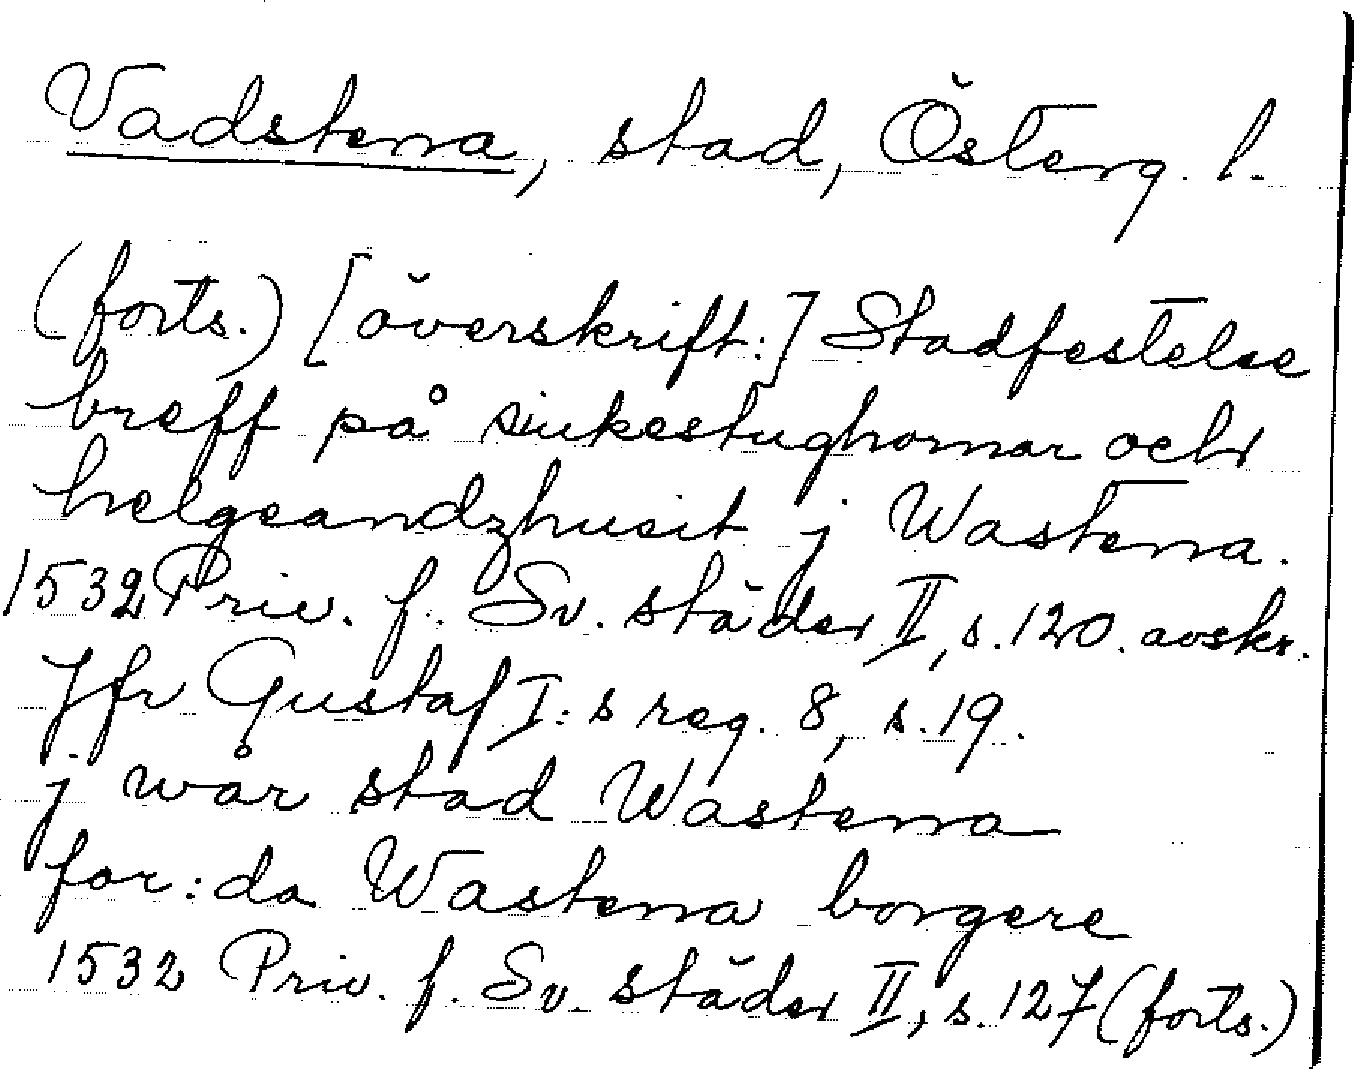 Vadstena, stad, Österg. l.
(forts.) [överskrift:] Stadfestelse
breff på siukestughomar och
helgeandzhusit j Wastena.
1532 Priv. f. Sv. städer II, s. 120. avskr.
Jfr Gustaf I:s reg. 8, s. 19.
j wår stad Wastena
for:da Wastena borgere
1532 Priv. f. Sv. städer II, s. 127 (forts.)